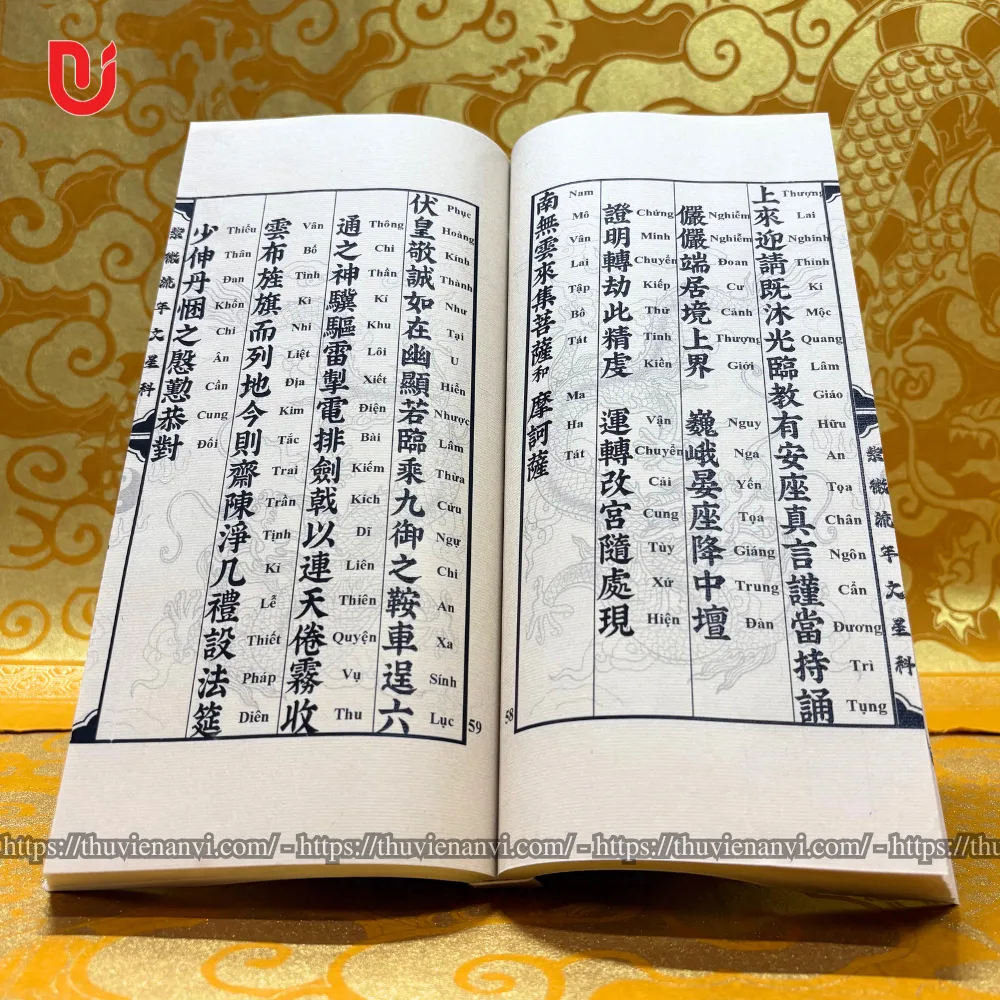 紫微流年文星科
上來迎請既沐光臨教有安座真言謹當持誦
Thượng Lai Nghinh Thỉnh Kí Mộc Quang Lâm Giáo Hữu An Tọa Chân Ngôn Cẩn Đương Trì Tụng
儼儼端居境上界 巍峨晏座降中壇
Nghiễm Nghiễm Đoan Cư Cảnh Thượng Giới Nguy Nga Yến Tọa Giáng Trung Đàn
證明轉劫此精虔 運轉改宮隨處現
Chứng Minh Chuyển Kiếp Thử Tinh Kiền Vận Chuyển Cải Cung Tùy Xứ Hiện
南無雲來集菩薩和 摩訶薩
Nam Mô Vân Lai Tập Bồ Tát Ma Ha Tát
58
伏皇敬誠如在幽顯若臨乘九御之鞍車逞六
Phục Hoàng Kính Thành Như Tại U Hiển Nhược Lâm Thừa Cửu Ngự Chi An Xa Sính Lục
通之神驥驅雷掣電排劍戟以連天倦霧收
Thông Chi Thần Kí Khu Lôi Xiết Điện Bài Kiếm Kích Dĩ Liên Thiên Quyện Vụ Thu
雲布旌旗而列地今則齋陳淨几禮設法筵
Vân Bố Tinh Kì Nhi Liệt Địa Kim Tắc Trai Trần Tịnh Kỉ Lễ Thiết Pháp Diên
少伸丹悃之慇懃恭對
Thiếu Thân Đan Khổn Chi Ân Cần Cung Đối
紫微流年文星科
59
-https://thuvienanvi.com/ -https://thuvienanvi.com/ -https://thuvienanvi.com/